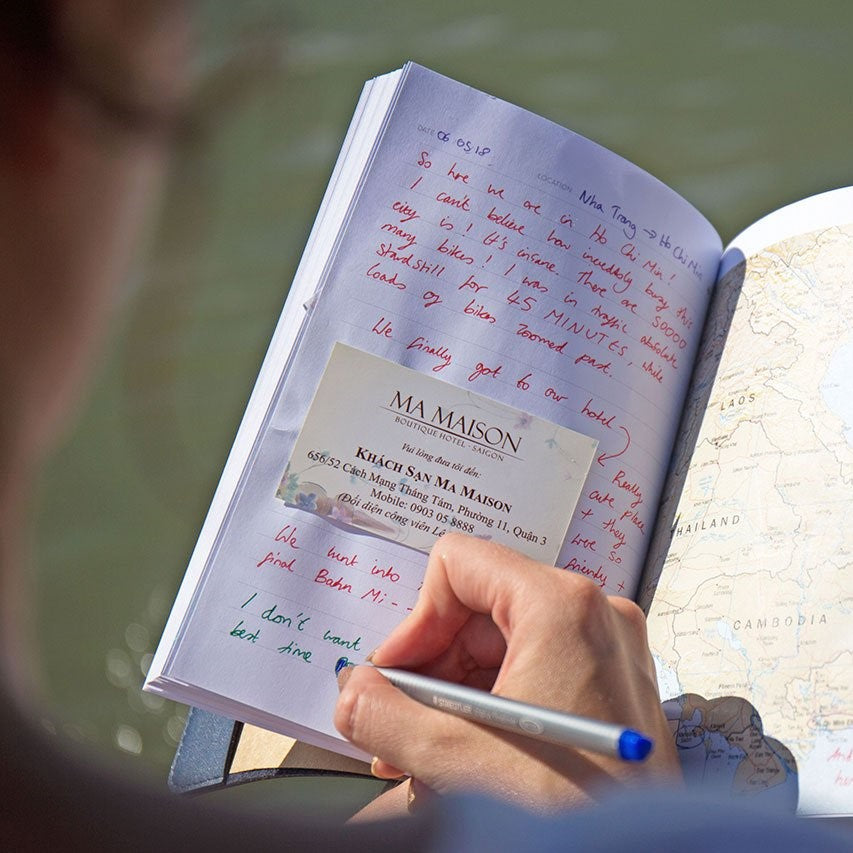 DATE 06 05 18
LOCATION Nha Trang → Ho Chi Min
So here we are in Ho Chi Min!
I can't believe how incredibly busy this
city is! It's insane. There are 50000
many bikes! I was in traffic absolute
standstill for 45 MINUTES, while
loads of bikes zoomed past.
We finally got to our hotel
MA MAISON
BOUTIQUE HOTEL - SAIGON
Vui lòng đưa tôi đến:
KHÁCH SẠN MA MAISON
656/52 Cách Mạng Tháng Tám, Phường 11, Quận 3
Mobile: 0903 05 8888
(Đối diện công viên Lê
Really
cute place
+ they
were so
friendly +
We went into
final Bahn Mi --
I don't want
best time
LAOS
THAILAND
CAMBODIA